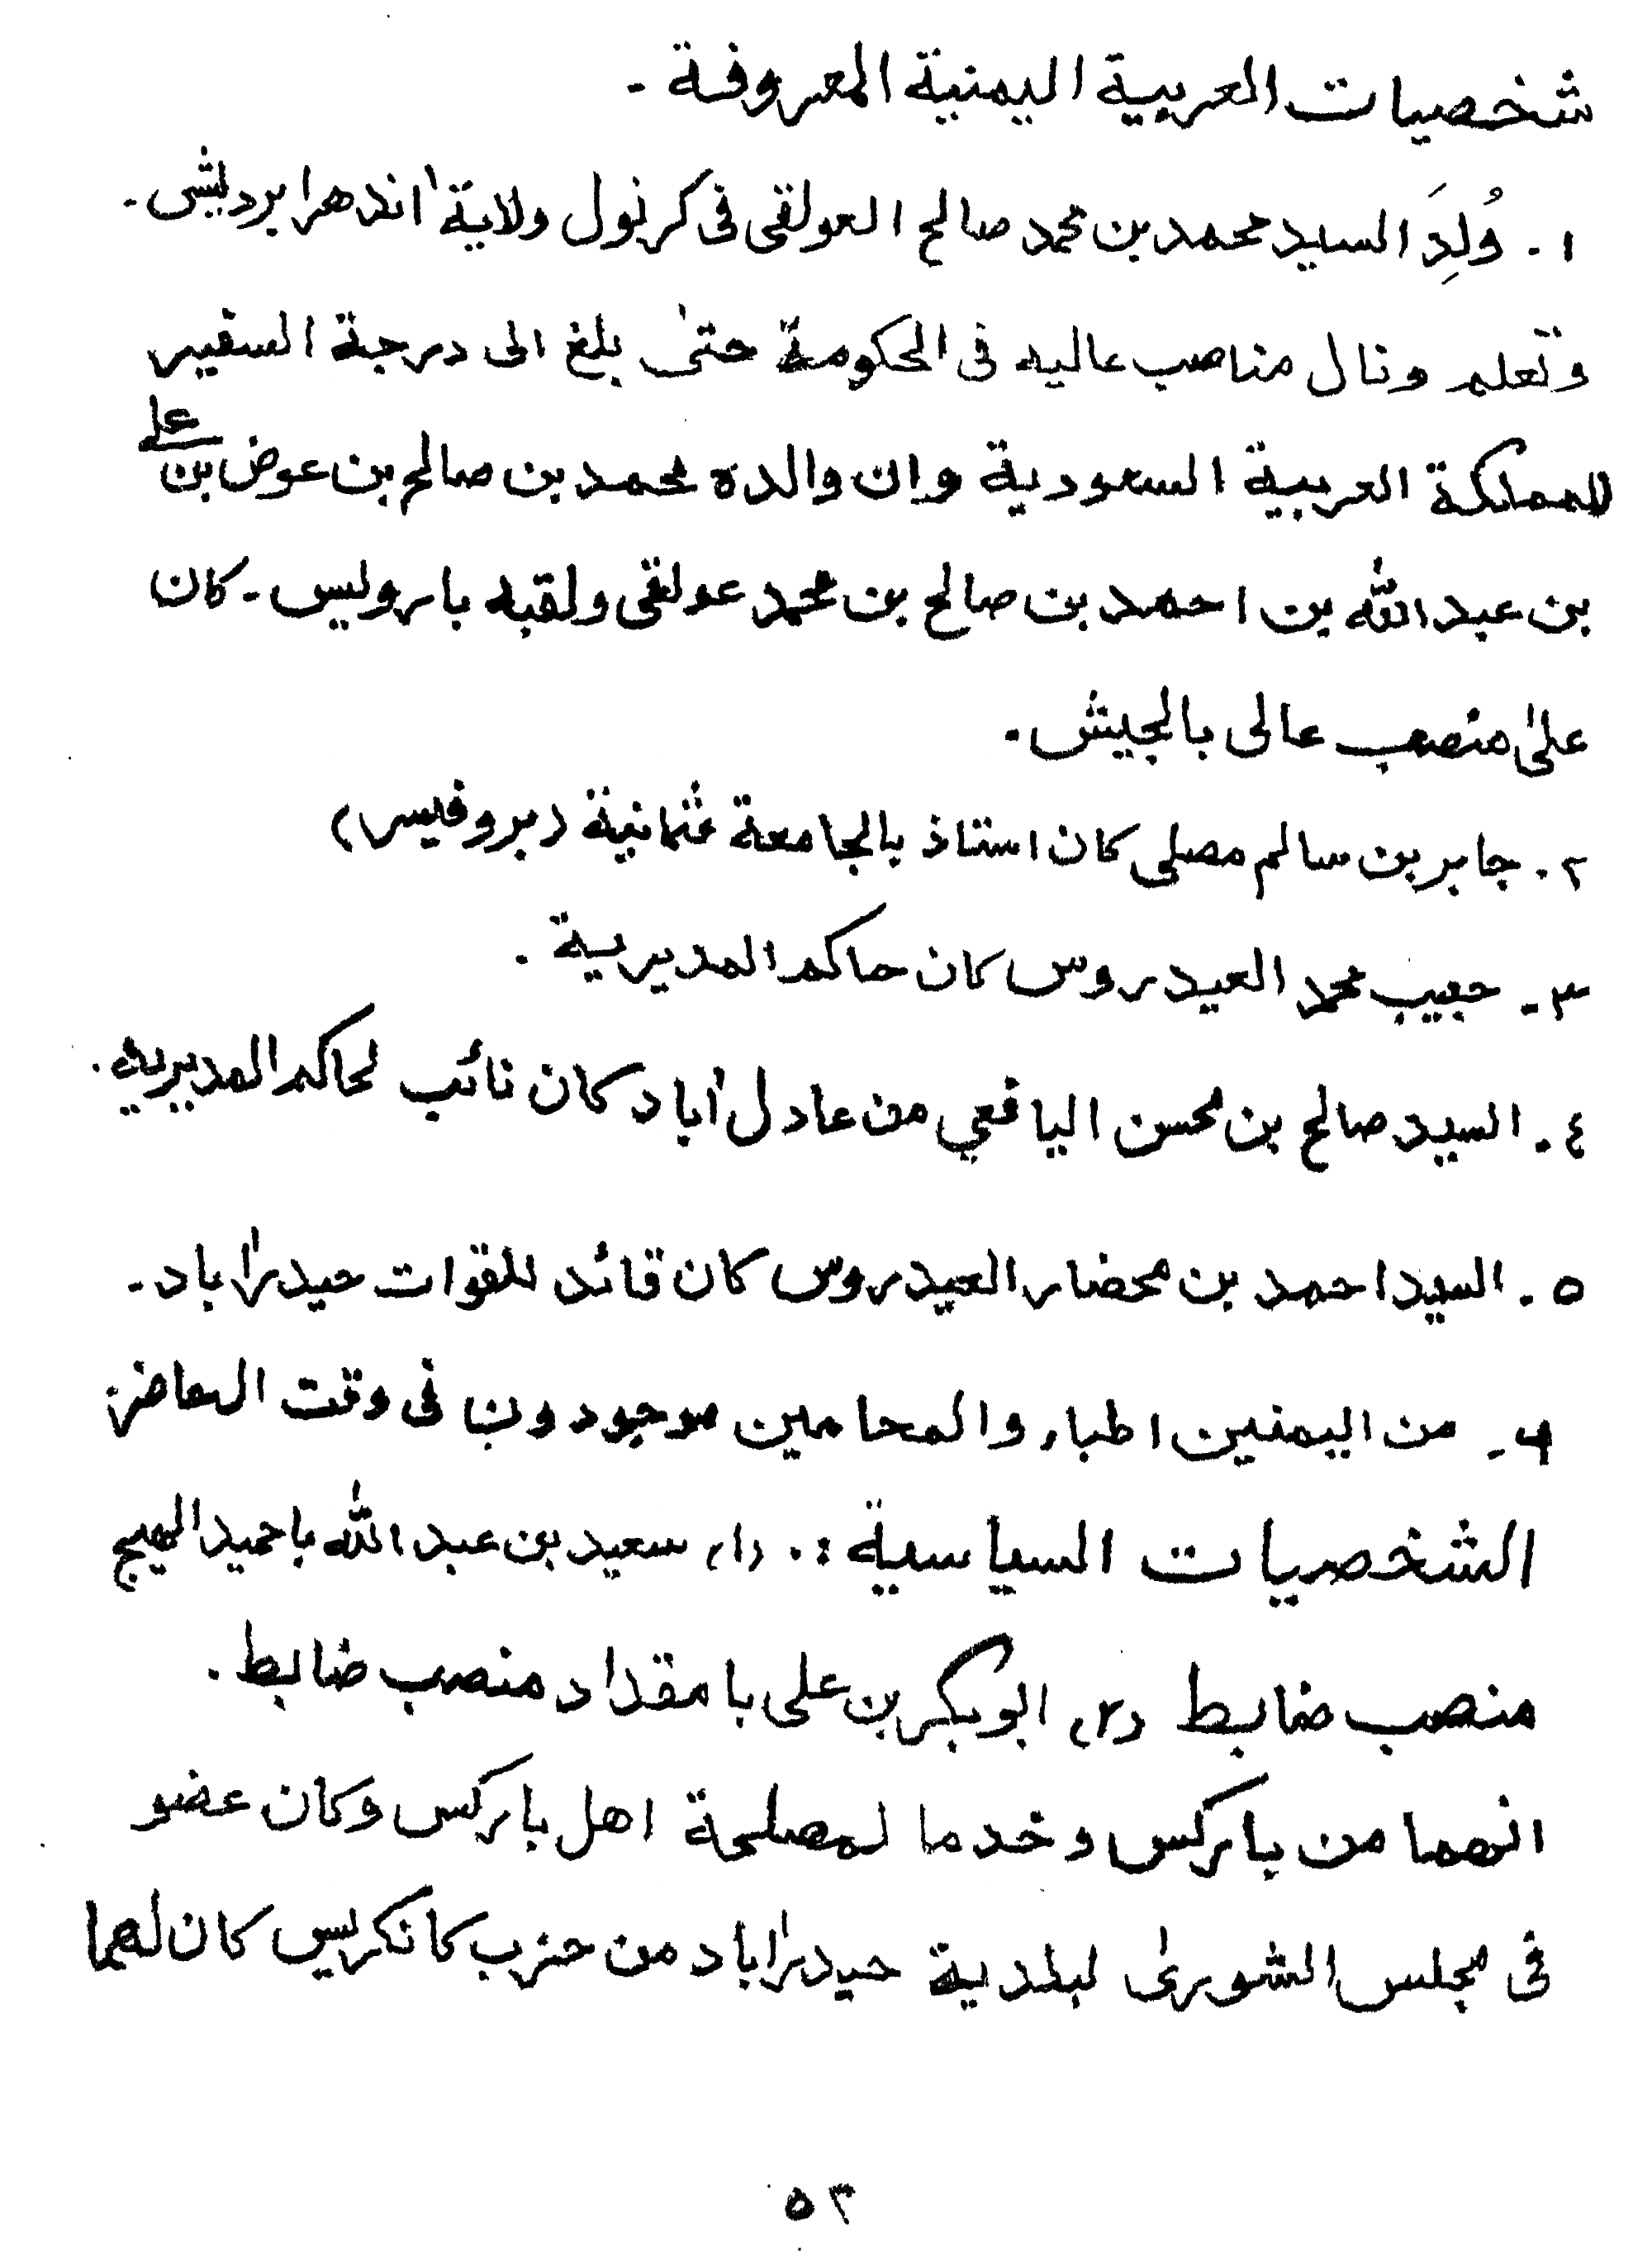 شخصيات العربية اليمنية المعروفة -
١ - وُلِدَ السيد محمد بن محمد صالح العولقى فى كرنول ولاية اندهرا برديش -
وتعلم ونال مناصب عاليه فى الحكومة حتىٰ بلغ الى درجة السفير
للمملكة العربية السعودية وان والده محمد بن صالح بن عوض بن على
بن عبد الله بن احمد بن صالح بن محمد عولقى ولقبه باروليس - كان
علىٰ منصب عالى بالجيش -
٢ - جابر بن سالم مصلى كان استاذ بالجامعة عثمانية (بروفيسر)
٣ - حبيب محمد العيدروس كان حاكم المديرية -
٤ - السيد صالح بن محسن اليافعي من عادل اٰباد كان نائب لحاكم المديريه -
٥ - السيد احمد بن محضار العيدروس كان قائد للقوات حيدراٰباد -
٦ - من اليمنين اطباء والمحامين موجودون فى وقت الحاضر -
الشخصيات السياسية :- (١) سعيد بن عبد الله باحميد
منصب ضابط (٢) ابوبكر بن على بامقداد منصب ضابط -
انهما من باركس وخدما لمصلحة اهل باركس وكان عضو
فى مجلس الشورىٰ لبلدية حيدراٰباد من حزب كانكريس كان لهما
٥٣